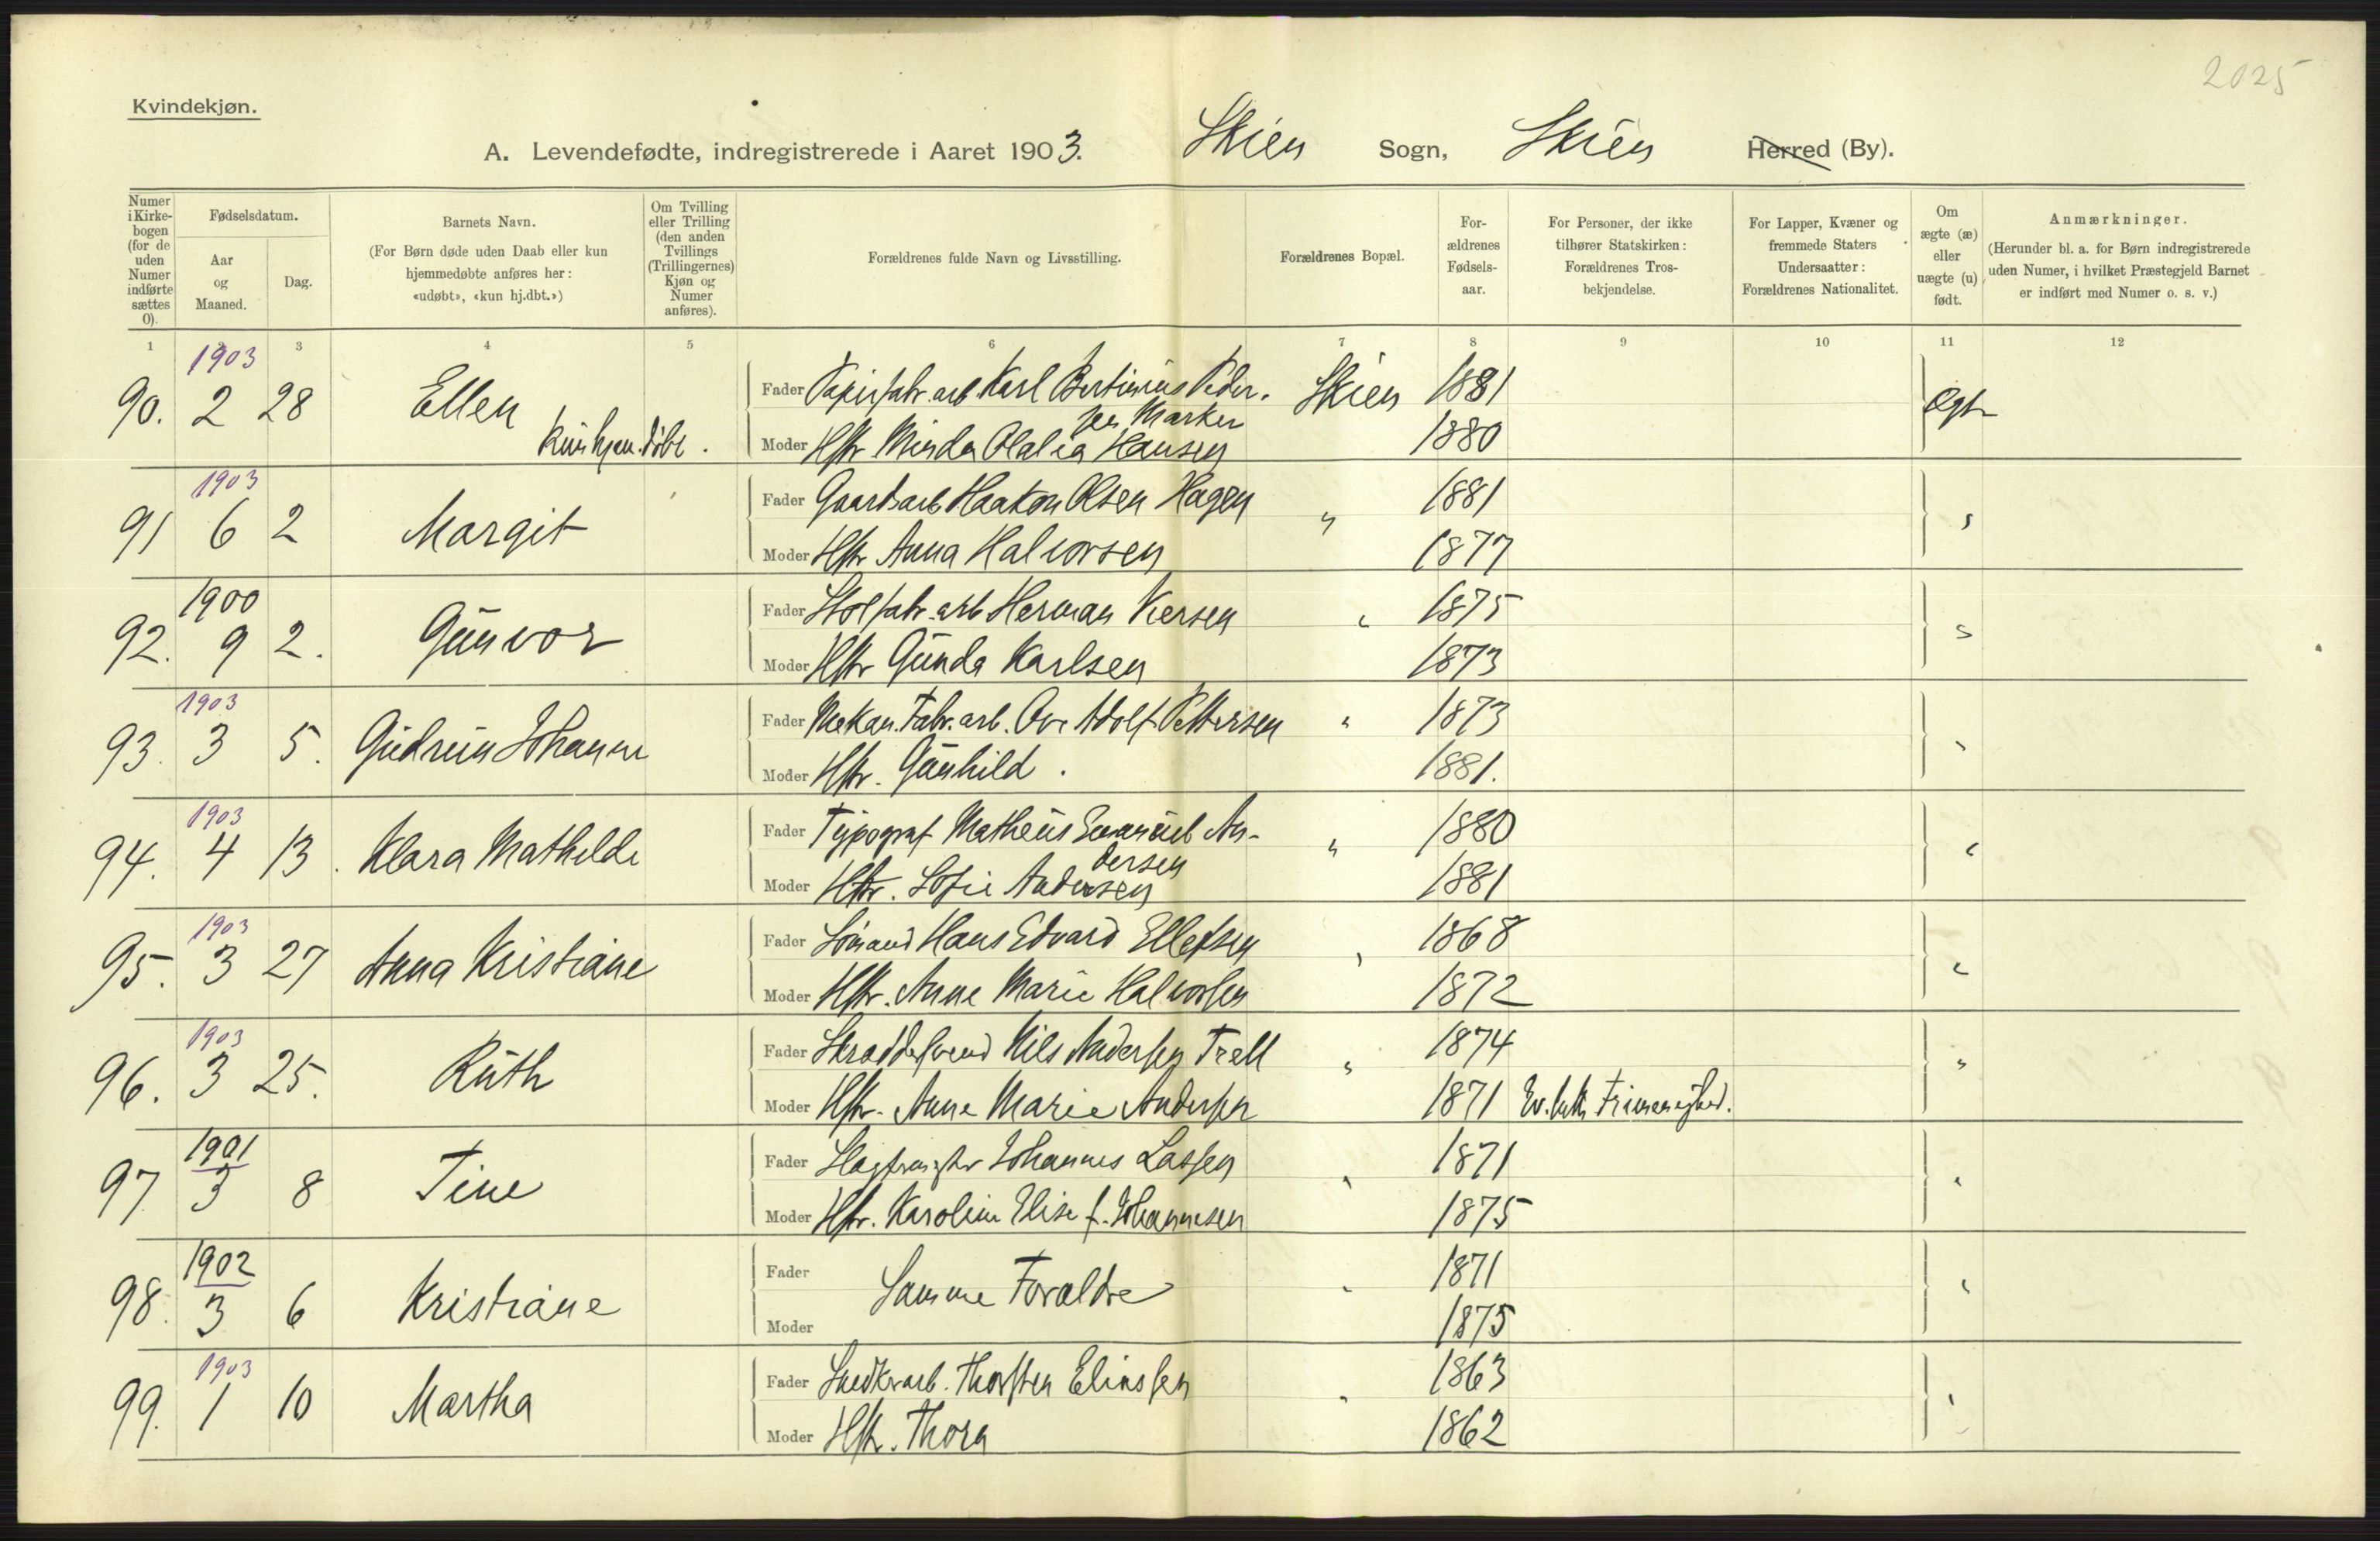 2025
Kvindekjøn.
A. Levendefødte, indregistrerede i Aaret 1903. Skien Sogn, Skien Herred (By).
Numer i Kirkebogen (for de uden Numer indførte sættes 0).
Fødselsdatum.
Aar og Maaned.
Dag.
Barnets Navn.
(For Børn døde uden Daab eller kun hjemmedøbte anføres her: «udøbt», «kun hj.dbt.»)
Om Tvilling eller Trilling (den anden Tvillings (Trillingernes) Kjøn og Numer anføres).
Forældrenes fulde Navn og Livsstilling.
Forældrenes Bopæl.
Forældrenes Fødselsaar.
For Personer, der ikke tilhører Statskirken: Forældrenes Trosbekjendelse.
For Lapper, Kvæner og fremmede Staters Undersaatter: Forældrenes Nationalitet.
Om ægte (æ) eller uægte (u) født.
Anmærkninger.
(Herunder bl. a. for Børn indregistrerede uden Numer, i hvilket Præstegjeld Barnet er indført med Numer o. s. v.)
1 2 3 4 5 6 7 8 9 10 11 12
1903
90. 2 28 Ellen Fader Papirfabr. arb Karl Bertinius Peder- Skien 1881 Ægte
sen Marker
kun hjem.døbt. Moder Hstr Minda Olalia Hansen 1880
1903
91 6 2 Margit Fader Gaardsarb Haakon Olsen Hagen " 1881 "
Moder Hstr Anna Halvorsen 1877
1900
92. 9 2. Gunvor Fader Stolfabr. arb Herman Iversen " 1875 "
Moder Hstr Gunda Karlsen 1873
1903
93. 3 5. Gudrun Johanne Fader Mekan. Fabr. arb. Ove Adolf Pettersen " 1873 "
Moder Hstr. Gunhild. 1881.
1903
94. 4 13. Klara Mathilde Fader Typograf Matheus Emanuel An- " 1880 "
dersen
Moder Hstr. Sofie Andersen 1881
1903
95. 3 27 Anna Kristiane Fader Sömand Hans Edvard Ellefsen " 1868 "
Moder Hstr. Anne Marie Halvorsen 1872
1903
96. 3 25. Ruth Fader Skræddersvend Nils Andersen Træll " 1874 "
Moder Hstr. Anne Marie Andersen 1871 Ev. luth Frimenighed.
1901
97 3 8 Tine Fader Johannes Lassen " 1871 "
Moder Hstr. Karoline Elise f. Johannesen 1875
1902
98. 3 6 Kristiane Fader Samme Forældre " 1871 "
Moder 1875
1903
99. 1 10 Martha Fader Snedkerarb. Thorsten Eliassen " 1863 "
Moder Hstr. Thora 1862